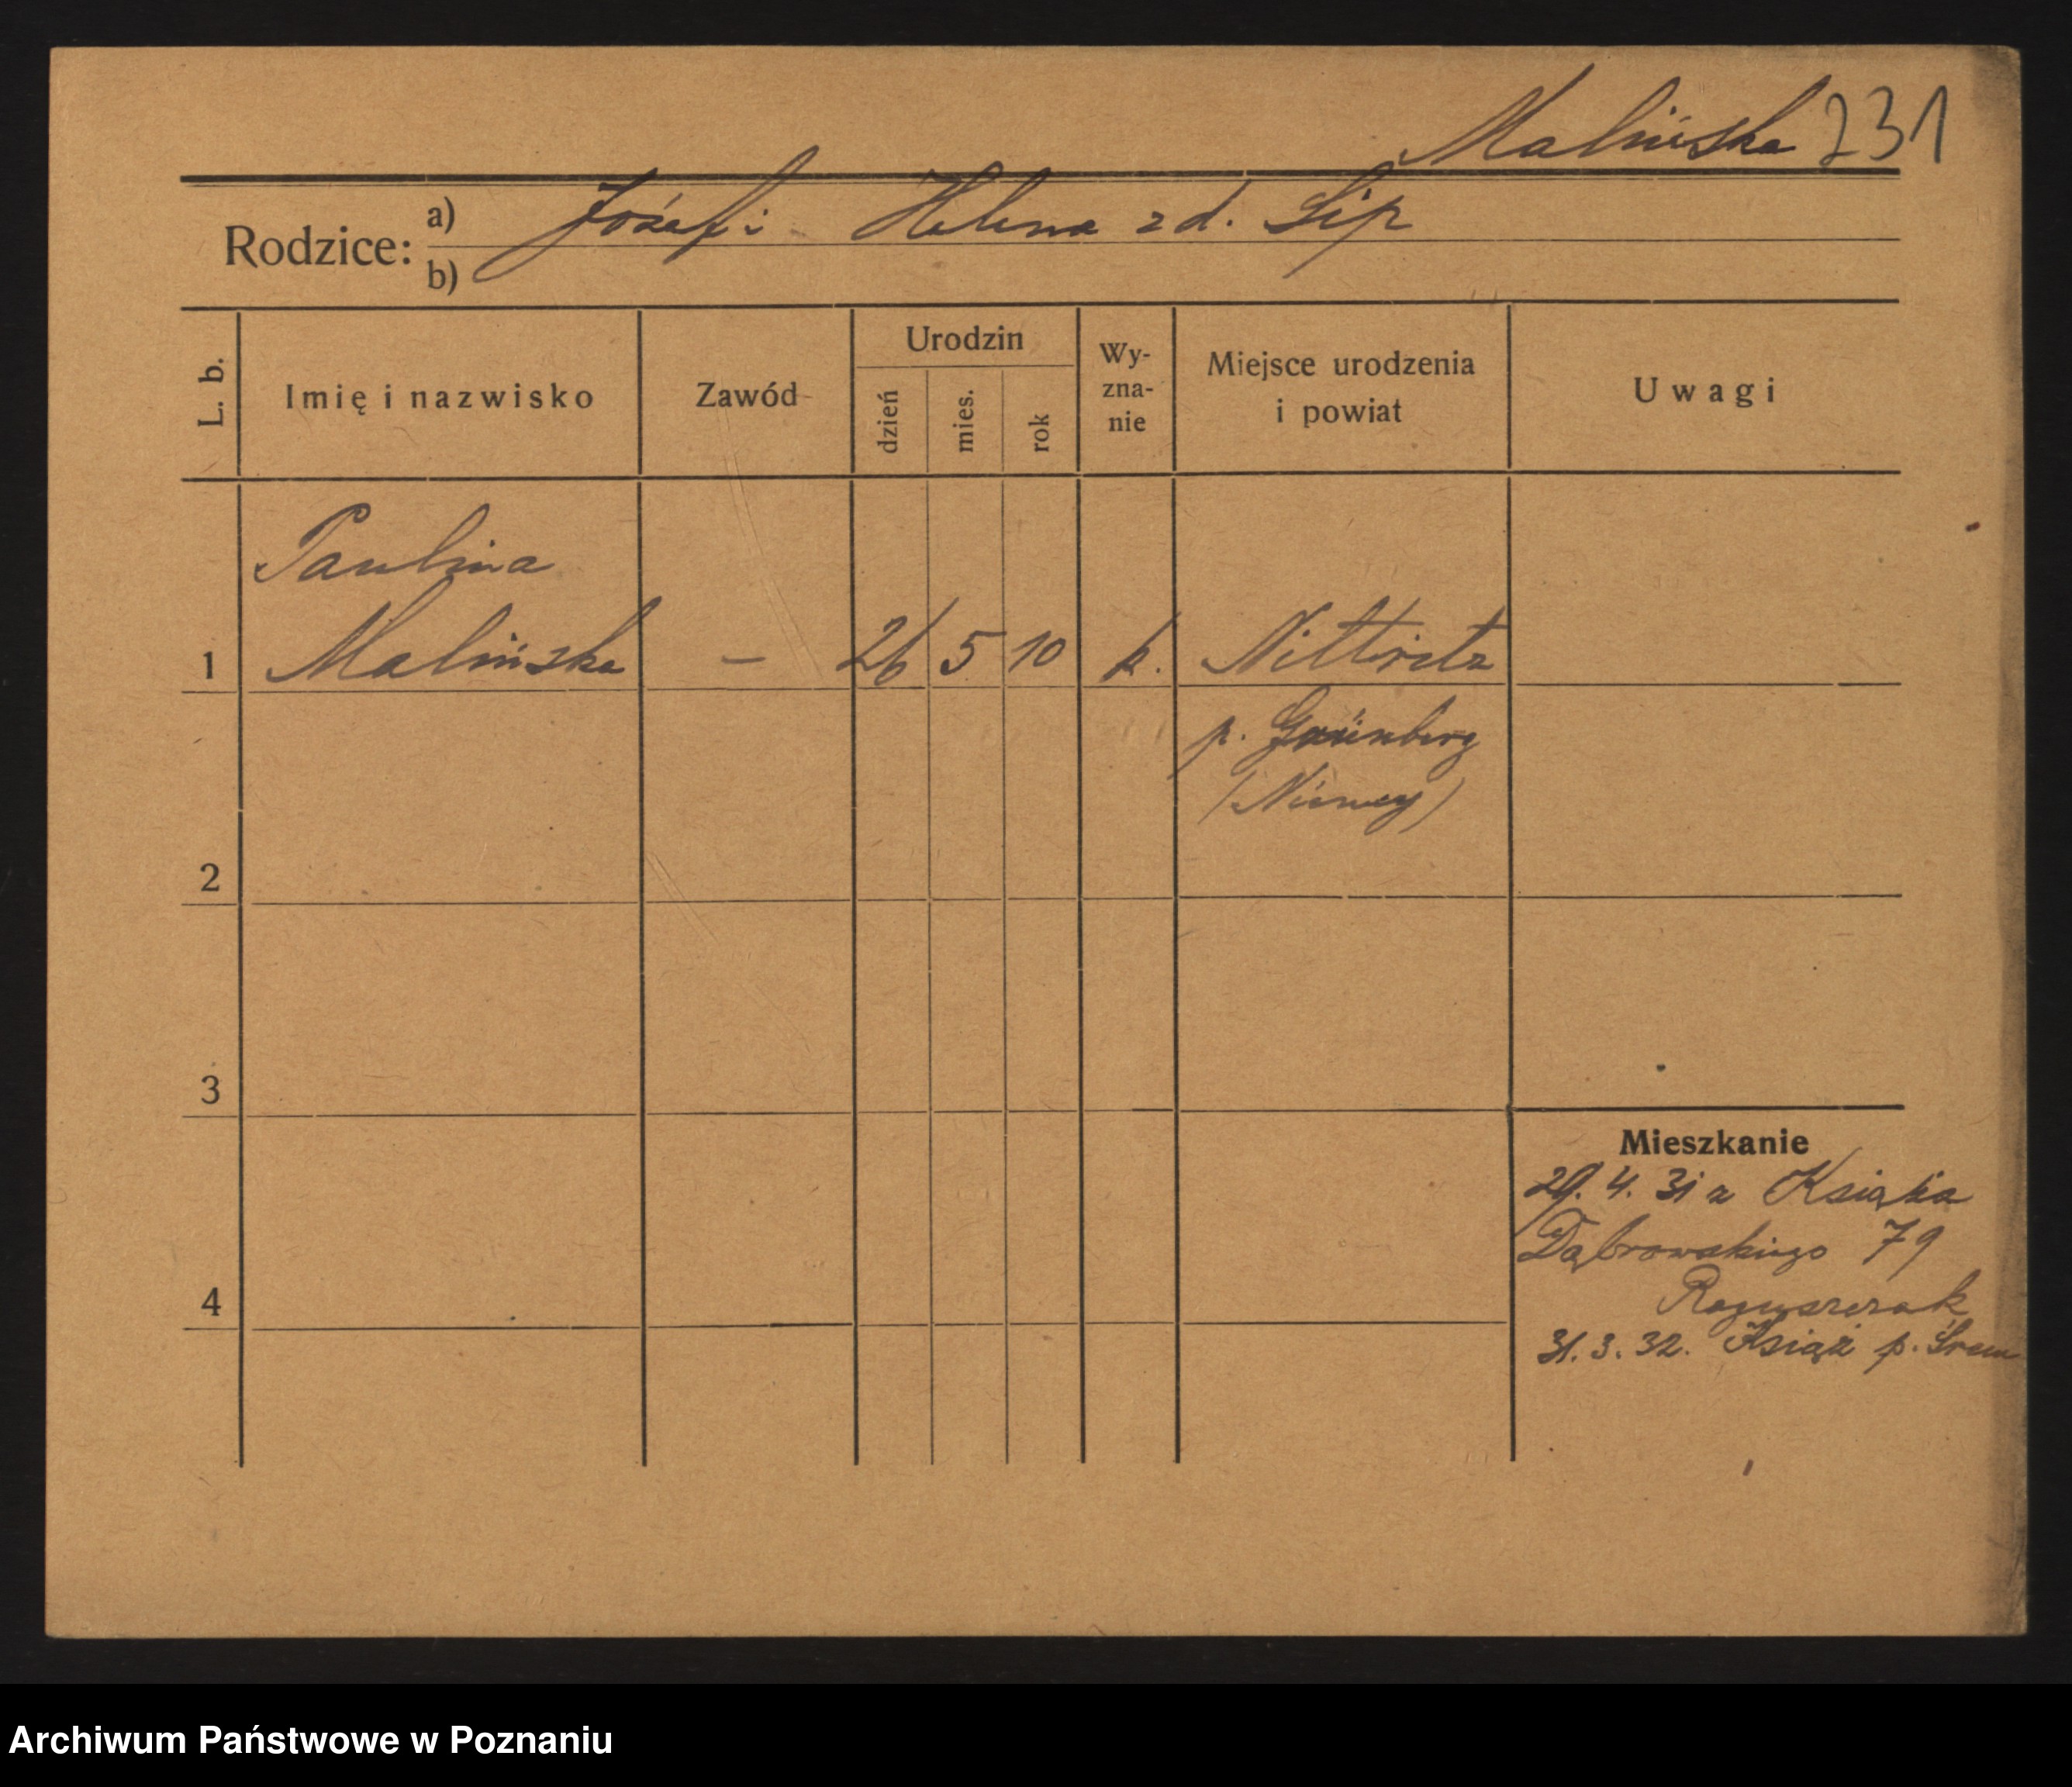 Malińska 231
Rodzice: a) Józef i Helena zd. Lip
b)
L. b. Imię i nazwisko Zawód Urodzin dzień mies. rok Wy-zna-nie Miejsce urodzenia i powiat Uwagi
Paulina
1 Malińska – 26 5 10 k. Nittritz
p. Grünberg
(Niemcy)
2
3
Mieszkanie
29. 4. 31 z Książa
Dąbrowskiego 79
4
31. 3. 32. Książ p. Śrem
Archiwum Państwowe w Poznaniu